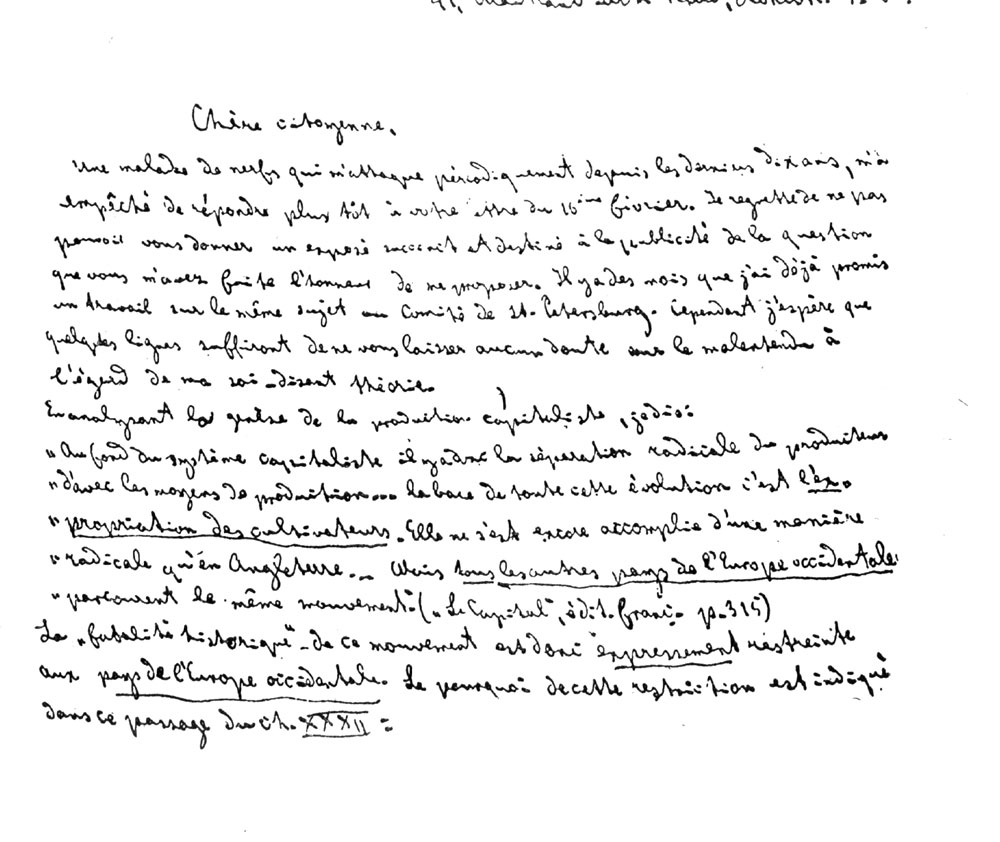 Chère citoyenne,
Une maladie de nerfs qui m'attaque périodiquement depuis les derniers dix ans, m'a
empêché de répondre plus tôt à votre lettre du 16ème février. Je regrette de ne pas
pouvoir vous donner un exposé succinct et destiné à la publicité de la question
que vous m'avez faite l'honneur de me proposer. Il y a des mois que j'ai déjà promis
un travail sur le même sujet au Comité de St. Petersburg. Cependant j'espère que
quelques lignes suffiront de ne vous laisser aucun doute sur le malentendu à
l'égard de ma soi-disant théorie.
En analysant la genèse de la production capitaliste, je dis:
"Au fond du système capitaliste il y a donc la séparation radicale du producteur
"d'avec les moyens de production... la base de toute cette évolution c'est l'ex-
"propriation des cultivateurs. Elle ne s'est encore accomplie d'une manière
"radicale qu'en Angleterre... Mais tous les autres pays de l'Europe occidentale
"parcourent le même mouvement." ("Le Capital", édit. franç. p. 315)
La "fatalité historique" de ce mouvement est donc expressément restreinte
aux pays de l'Europe occidentale. Le pourquoi de cette restriction est indiqué
dans ce passage du ch. XXXII: